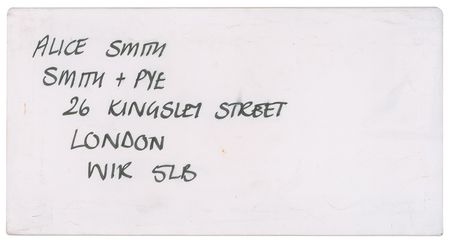 ALICE SMITH
SMITH + PYE
26 KINGSLEY STREET
LONDON
W1R 5LB